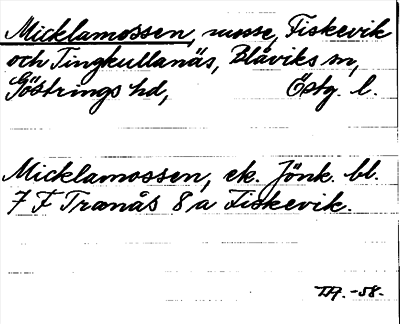 Micklamossen, mosse, Fiskevik
och Tingkullanäs, Blåviks sn,
Göstrings hd, Östg. l.
Micklamossen, ek. Jönk. bl.
7 F Tranås 8 a Fiskevik.
TH. -58-